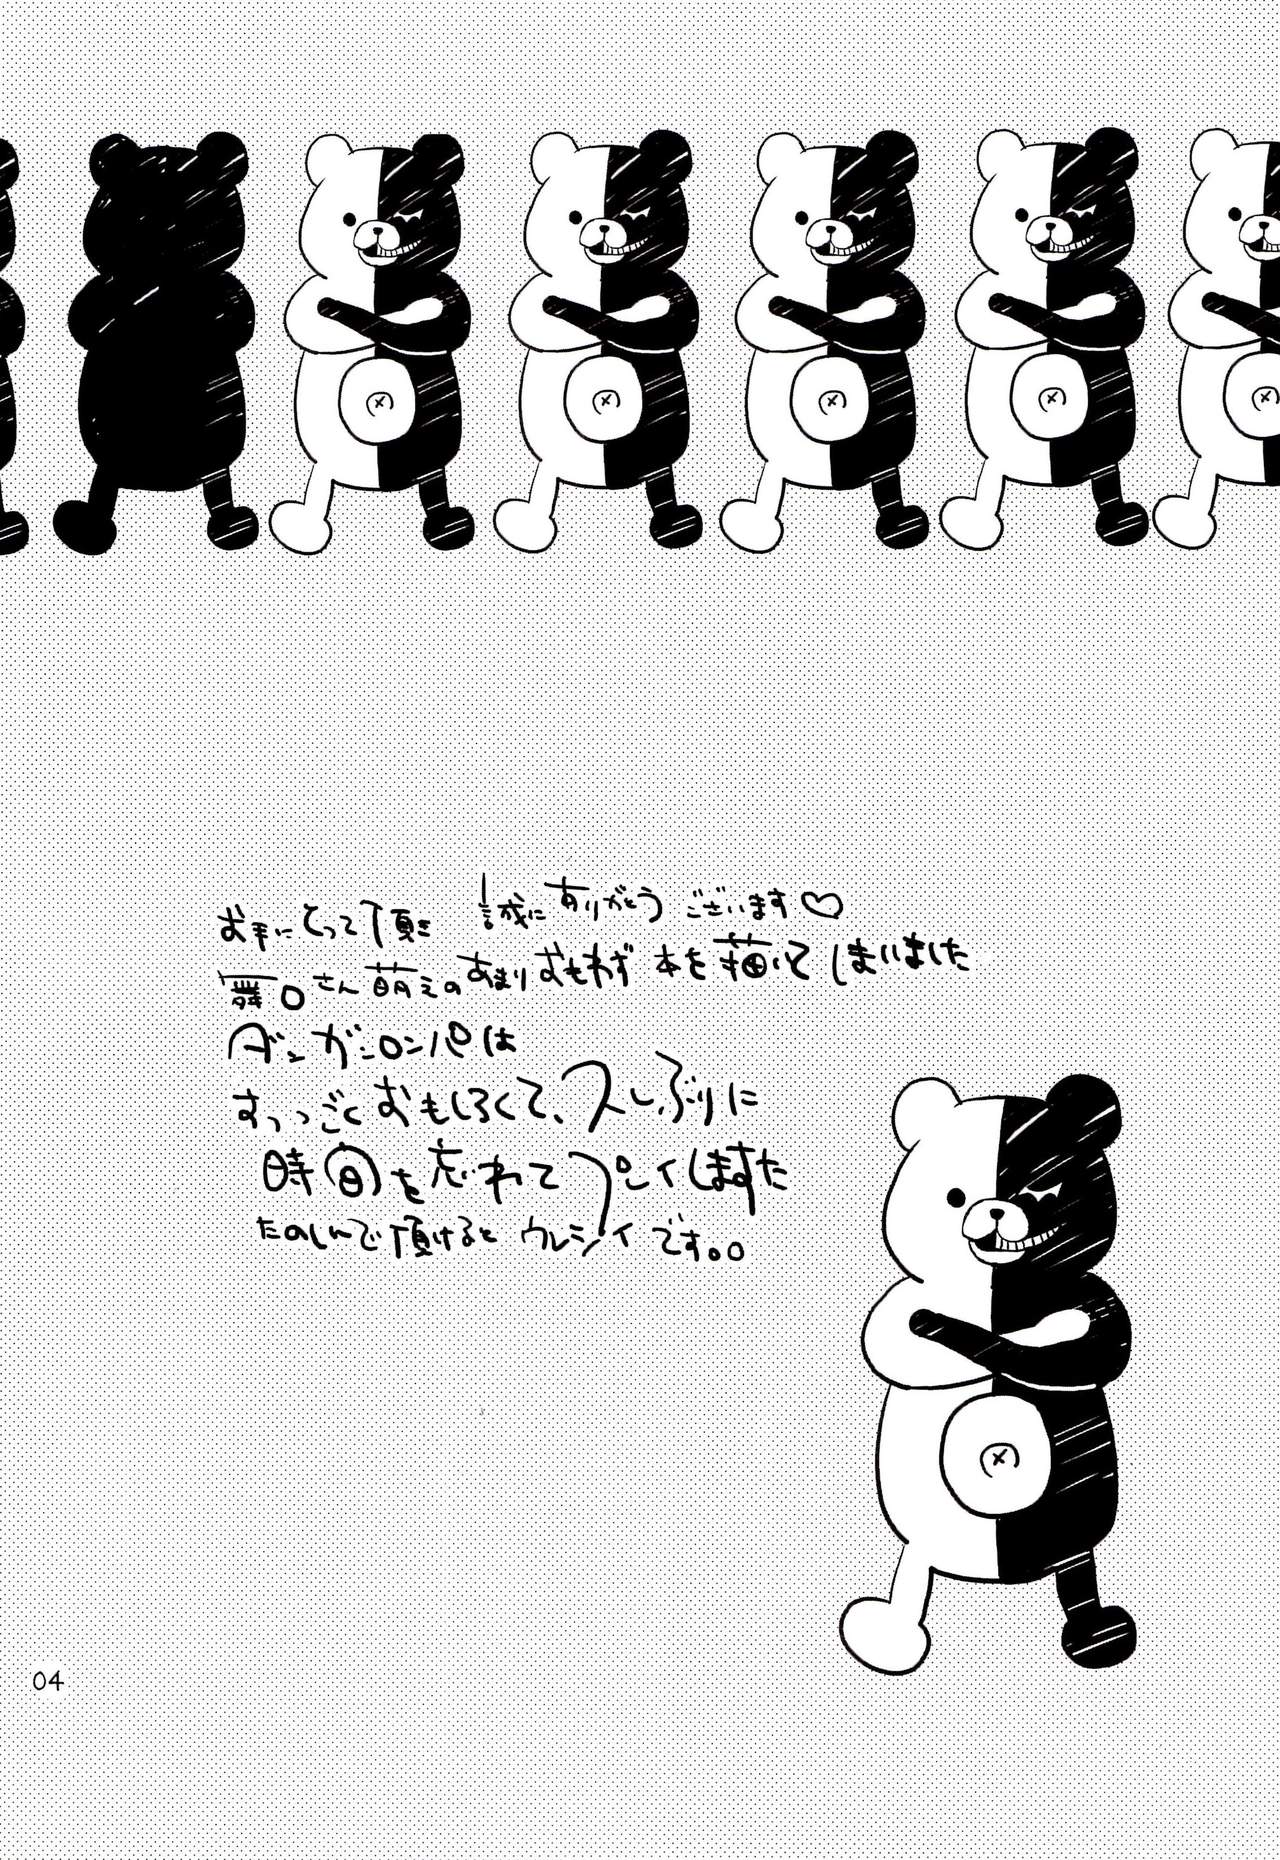 お手にとって頂き 誠にありがとうございます♡
舞園さん萌えのあまりおもわず本を描いてしまいました
ダンガンロンパは
すっっごくおもしろくて、久しぶりに
時間を忘れてプレイしますた
たのしんで頂けると ウレシイです。。
04